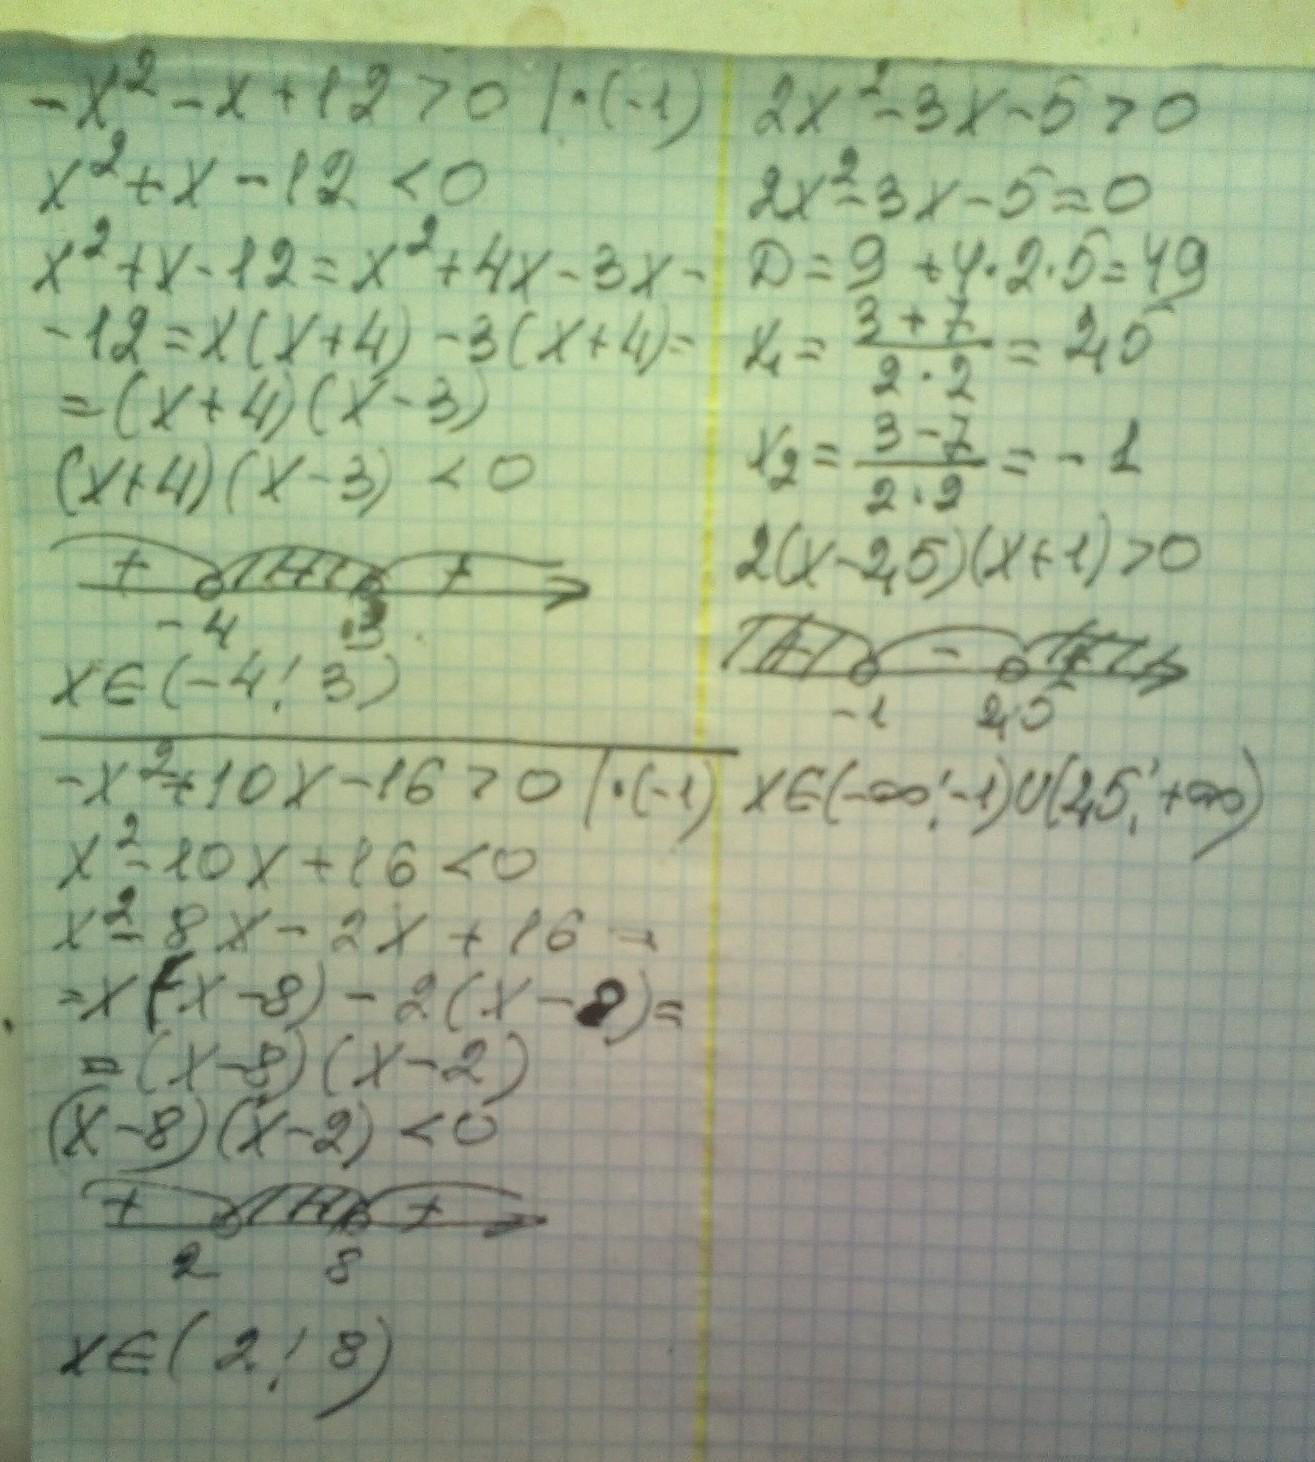 -x²-x+12>0 |·(-1)
x²+x-12<0
x²+x-12=x²+4x-3x-
-12=x(x+4)-3(x+4)=
=(x+4)(x-3)
(x+4)(x-3)<0
+ - +
-4 3
x∈(-4; 3)
-x²+10x-16>0 |·(-1)
x²-10x+16<0
x²-8x-2x+16=
=x(x-8)-2(x-8)=
=(x-8)(x-2)
(x-8)(x-2)<0
+ - +
2 8
x∈(2; 8)
2x²-3x-5>0
2x²-3x-5=0
D=9+4·2·5=49
x₁=(3+7)/(2·2)=2,5
x₂=(3-7)/(2·2)=-1
2(x-2,5)(x+1)>0
+ - +
-1 2,5
x∈(-∞;-1)∪(2,5;+∞)